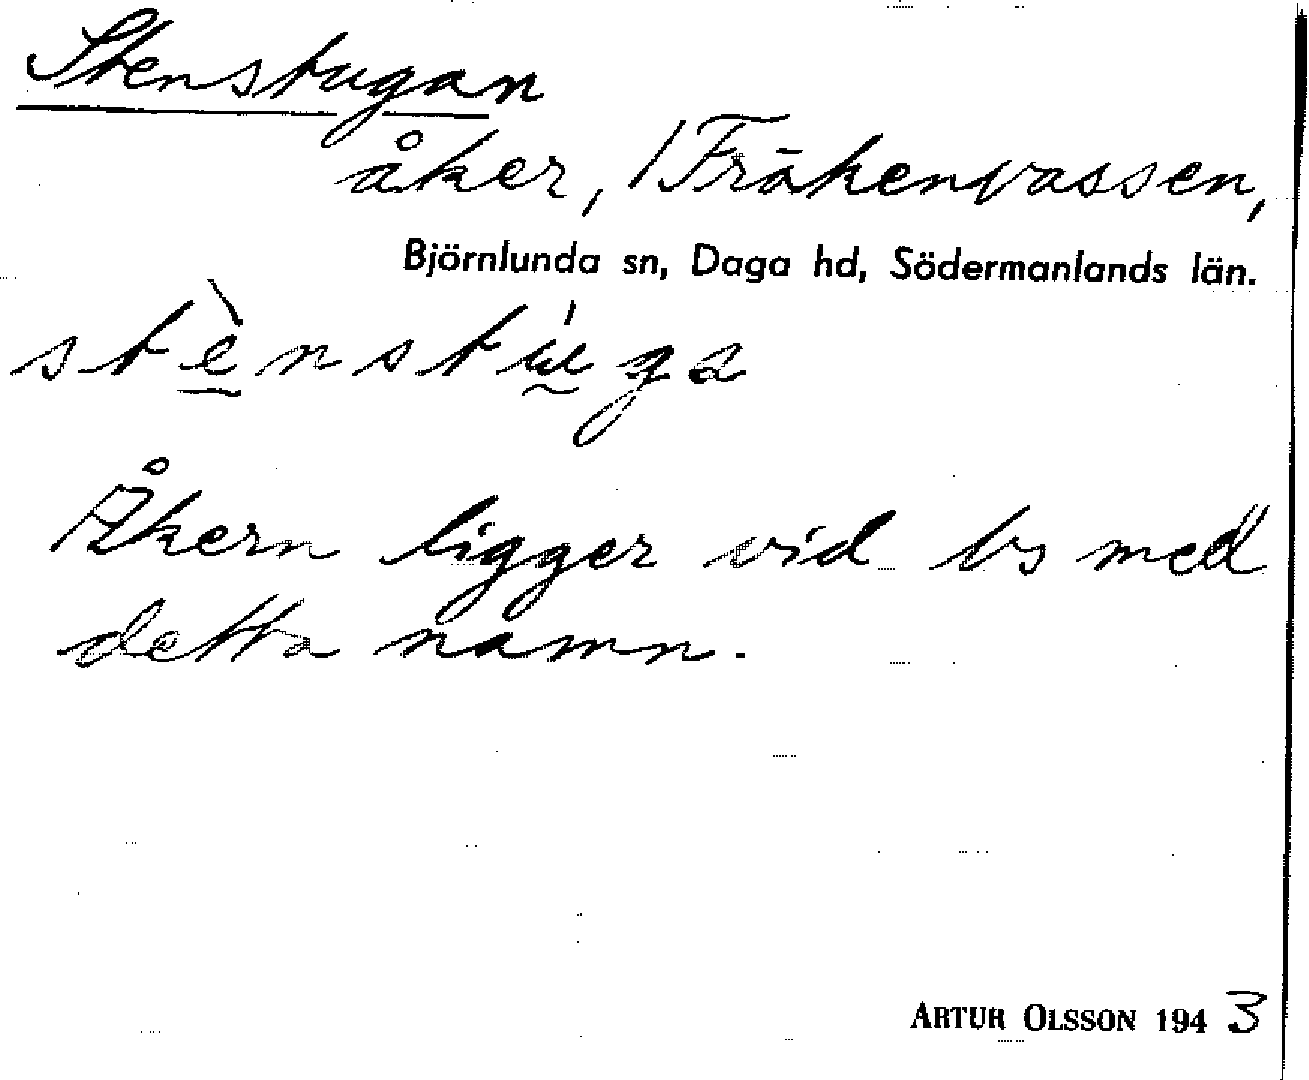 Stenstugan
åker, /Fräkenvassen,
Björnlunda sn, Daga hd, Södermanlands län.
stè̱nstṵ́ga
Åkern ligger vid bs med
detta namn.
ARTUR OLSSON 1943